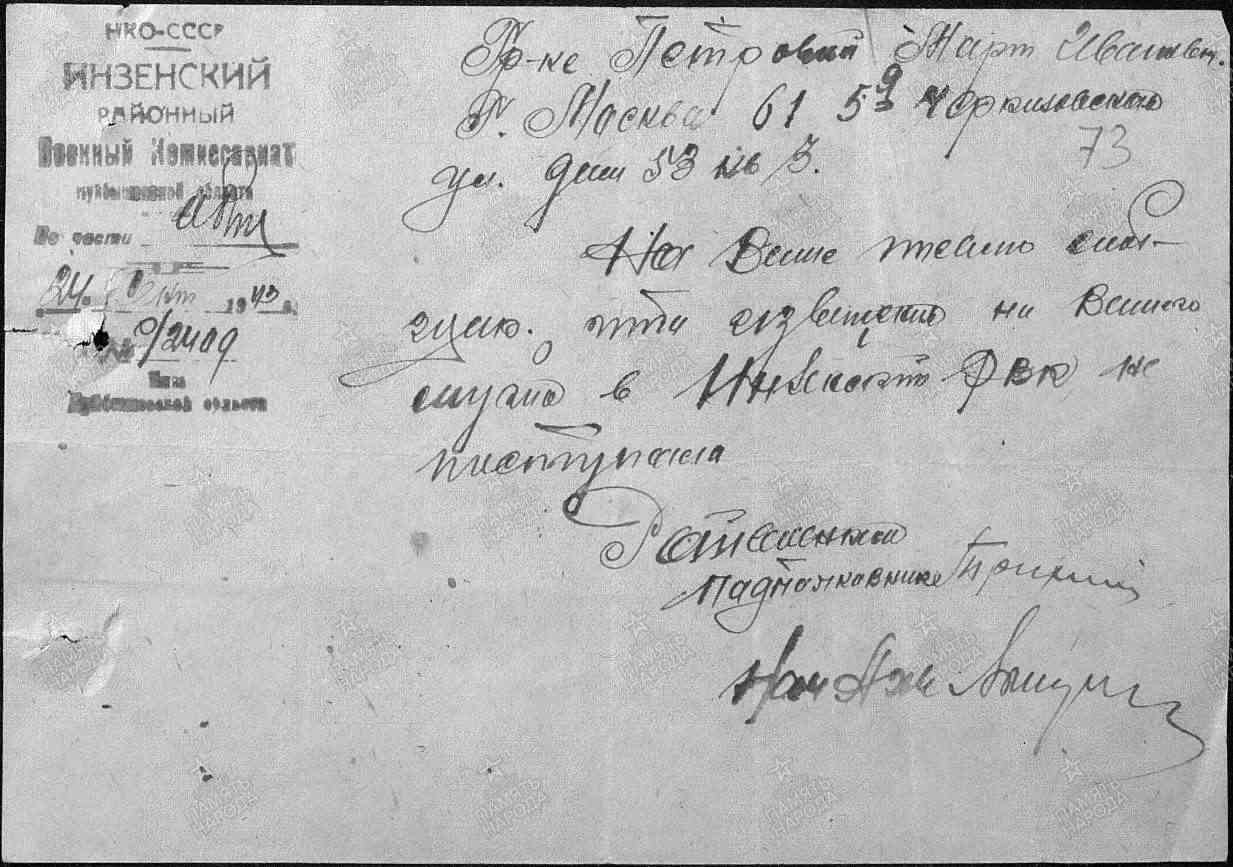 НКО-СССР
ИНЗЕНСКИЙ
РАЙОННЫЙ
Военный Комиссариат
Куйбышевской области
По части
24. Окт 1943 г.
№ 9/2409
Инза
Куйбышевской области
Гр-ке Петровой Март Ивановн.
Г. Москва 61 5 9 Черкизовская
73
ул. дом 53 кв 3.
На Ваше письмо сооб-
щаю. что извещение на Вашего
в Инзенский РВК не
поступала
Райвоенком
Подполковник
ПАМЯТЬ НАРОДА